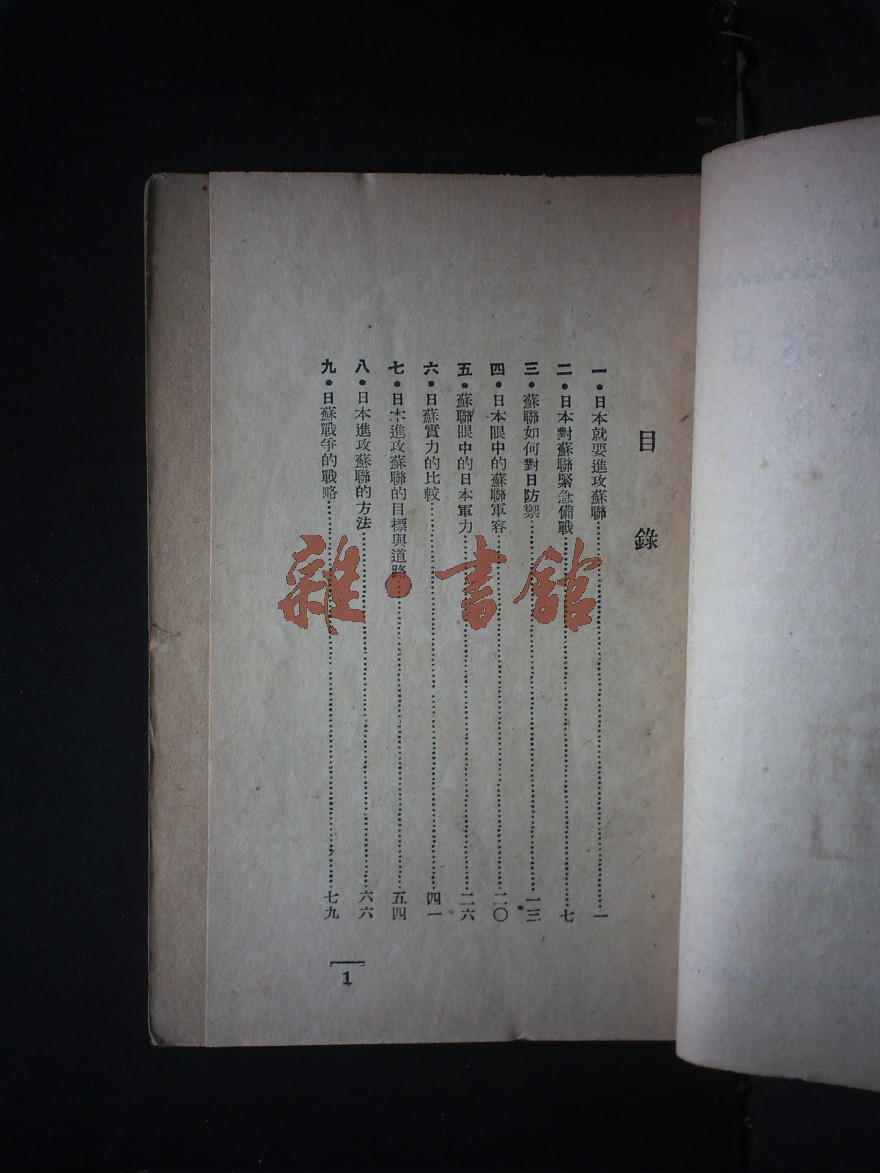 目錄
一・日本就要進攻蘇聯……一
二・日本對蘇聯緊急備戰……七
三・蘇聯如何對日防禦……一三
四・日本眼中的蘇聯軍容……二〇
五・蘇聯眼中的日本軍力……二六
六・日蘇實力的比較……四一
七・日本進攻蘇聯的目標與道路……五四
八・日本進攻蘇聯的方法……六六
九・日蘇戰爭的戰略……七九
1
雜・書館